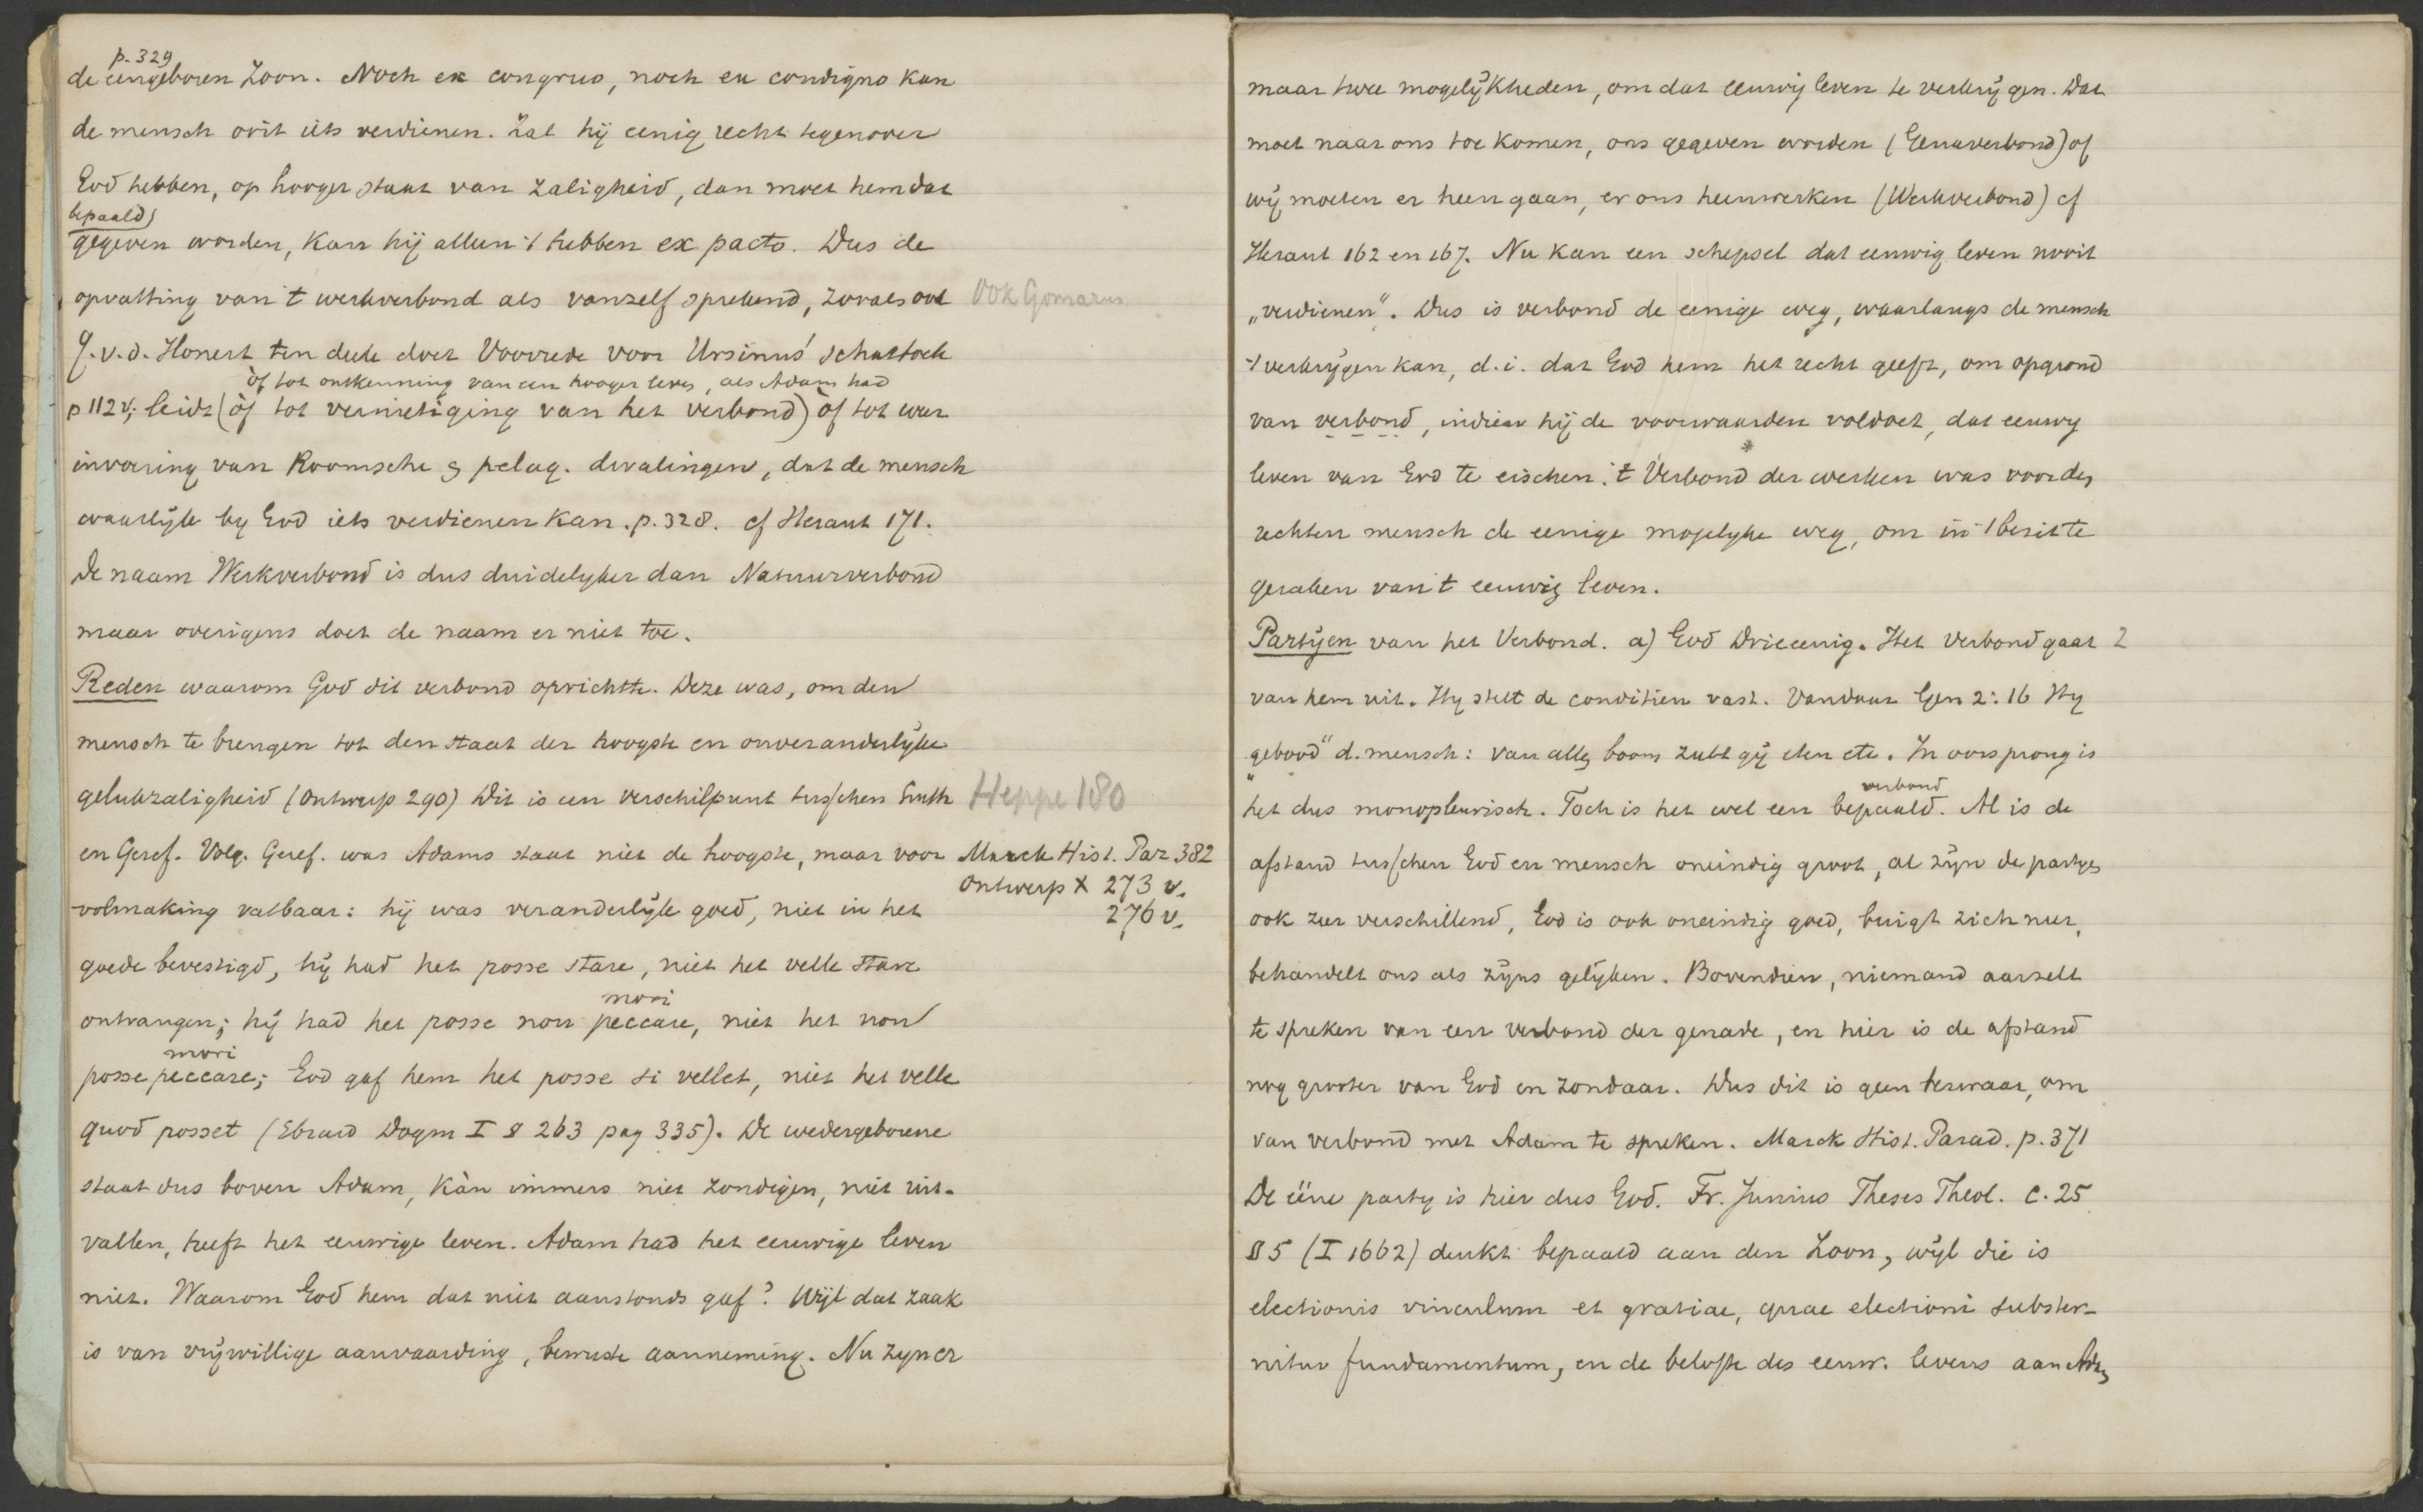 p. 329
de eengeboren Zoon. Noch ex congruo, noch ex condigno kan
de mensch ooit iets verdienen. Zal hij eenig recht tegenover
God hebben, op hooger staat van zaligheid, dan moet hem dat
bepaald
gegeven worden, kan hij alleen 't hebben ex pacto. Dus de
opvatting van 't werkverbond als vanzelf sprekend, zooals ook
Ook Gomarus
J. v. d. Honert ten deele doet Voorrede voor Ursinus' schatboek
òf tot ontkenning van een hooger leven, als Adam had
p 112 v; leidt (òf tot vernietiging van het verbond) òf tot weer
invoering van Roomsche & pelag. dwalingen, dat de mensch
waarlijk by God iets verdienen kan. p. 328. cf Heraut 171.
De naam Werkverbond is dus duidelyker dan Natuurverbond
maar overigens doet de naam er niet toe.
Reden waarom God dit verbond oprichtte. Deze was, om den
mensch te brengen tot den staat der hoogste en onveranderlijke
gelukzaligheid (Ontwerp 290) Dit is een verschilpunt tusschen Luth
Heppe 180
en Geref. Volg. Geref. was Adams staat niet de hoogste, maar voor
Marck Hist. Par 382
Ontwerp X 273 v.
volmaking vatbaar: hij was veranderlijk goed, niet in het
276 v.
goede bevestigd, hij had het posse stare, niet het velle stare
mori
ontvangen; hij had het posse non peccare, niet het non
mori
posse peccare; God gaf hem het posse si vellet, niet het velle
quod posset (Ebrard Dogm I § 263 pag 335). De wedergeborene
staat dus boven Adam, kàn immers niet zondigen, niet uit-
vallen, heeft het eeuwige leven. Adam had het eeuwige leven
niet. Waarom God hem dat niet aanstonds gaf? Wijl dat zaak
is van vrijwillige aanvaarding, bewuste aanneming. Nu zyn er
maar twee mogelijkheden, om dat eeuwig leven te verkrijgen. Dat
moet naar ons toe komen, ons gegeven worden (Genaverbond) of
wij moeten er heen gaan, er ons heenwerken (Werkverbond) cf
Heraut 162 en 167. Nu kan een schepsel dat eeuwig leven nooit
„verdienen". Dus is verbond de eenige weg, waarlangs de mensch
't verkrijgen kan, d.i. dat God hem het recht geeft, om op grond
van verbond, indien hij de voorwaarden voldoet, dat eeuwig
leven van God te eischen. 't Verbond der werken was voor den
rechten mensch de eenige mogelyke weg, om in 't bezit te
geraken van 't eeuwig leven.
Partijen van het Verbond. a) God Drieeenig. Het verbond gaat 2
van hem uit. Hy stelt de conditien vast. Vandaar Gen 2: 16 Hy
„gebood" d. mensch: van allen boom zult gij eten etc. In oorsprong is
verbond
het dus monopleurisch. Toch is het wel een bepaald. Al is de
afstand tusschen God en mensch oneindig groot, al zijn de partyen
ook zeer verschillend, God is ook oneindig goed, buigt zich neer,
behandelt ons als zijns gelijken. Bovendien, niemand aarzelt
te spreken van een verbond der genade, en hier is de afstand
nog grooter van God en zondaar. Dus dit is geen bezwaar, om
van verbond met Adam te spreken. Marck Hist. Parad. p. 371
De ééne party is hier dus God. Fr. Junius Theses Theol. C. 25
§ 5 (I 1662) denkt bepaald aan den Zoon, wijl die is
electionis vinculum et gratiae, quae electioni subster-
nitur fundamentum, en de belofte des eeuw. levens aan Adam